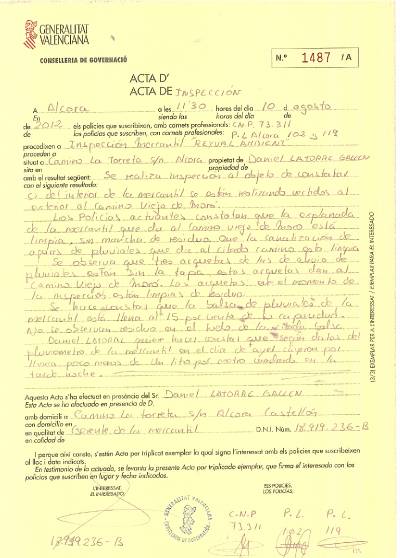 GENERALITAT
VALENCIANA
CONSELLERIA DE GOVERNACIÓ
N.º 1487 /A
ACTA D'
ACTA DE INSPECCIÓN
A Alcora a les 11'30 hores del 10 d agosto
En siendo las horas del día de
de 2012 els policies que suscribixen, amb carnets professionals: C.N.P 73.311
los policías que suscriben, con carnets profesionales: P.L Alcora 102 y 119
procedixen a Inspección Mercantil REYVAL AMBIENT
proceden a
situat a Camino La Torreta s/n Alcora propietat de Daniel LATORRE GALLEN
situado en propiedad de
amb el resultat següent: Se realiza inspección al objeto de constatar
con el siguiente resultado:
si del interior de la mercantil se están realizando vertidos al
exterior al Camino Viejo de Moró.
Los Policías actuantes constatan que la explanada
de la mercantil que da al camino viejo de Moró está
limpia, sin mancha de residuo. Que la canalización de
aguas de pluviales que da al citado camino está limpia
Se observa que tres arquetas de las de aguas de
pluviales están sin la tapa, estas arquetas dan al
Camino Viejo de Moró. Las arquetas en el momento de
la inspección están limpias de residuo.
Se hace constar que la balsa de pluviales de la
mercantil esta llena al 15 por ciento de su capacidad.
No se observan residuo en el suelo de la balsa.
Daniel LATORRE quiere hacer constar que según datos del
pluviometro de la mercantil en el día de ayer cayeron por
lluvia poco menos de un litro por metro cuadrado en la
tarde noche.
Aquesta Acta s'ha efectuat en presència del Sr. Daniel LATORRE GALLEN
Esta Acta se ha efectuado en presencia de D.
amb domicili a Camino La torreta s/n Alcora Castellón
con domicilio en
en qualitat de Gerente de la mercantil D.N.I. Núm. 18.919.236-B
en calidad de
I perquè així conste, s'estén Acta per triplicat exemplar la qual signa l'interessat amb els policies que suscribixen
al lloc i data indicats.
En testimonio de lo actuado, se levanta la presente Acta por triplicado ejemplar, que firma el interesado con los
policías que suscriben en lugar y fecha indicados.
L'INTERESSAT, ELS POLICIES,
EL INTERESADO, LOS POLICÍAS,
GENERALITAT VALENCIANA
C.N.P P.L. P.L.
73.311 102 119
18919236-B
(3/3) EXEMPLAR PER A L'INTERESSAT / EJEMPLAR PARA EL INTERESADO